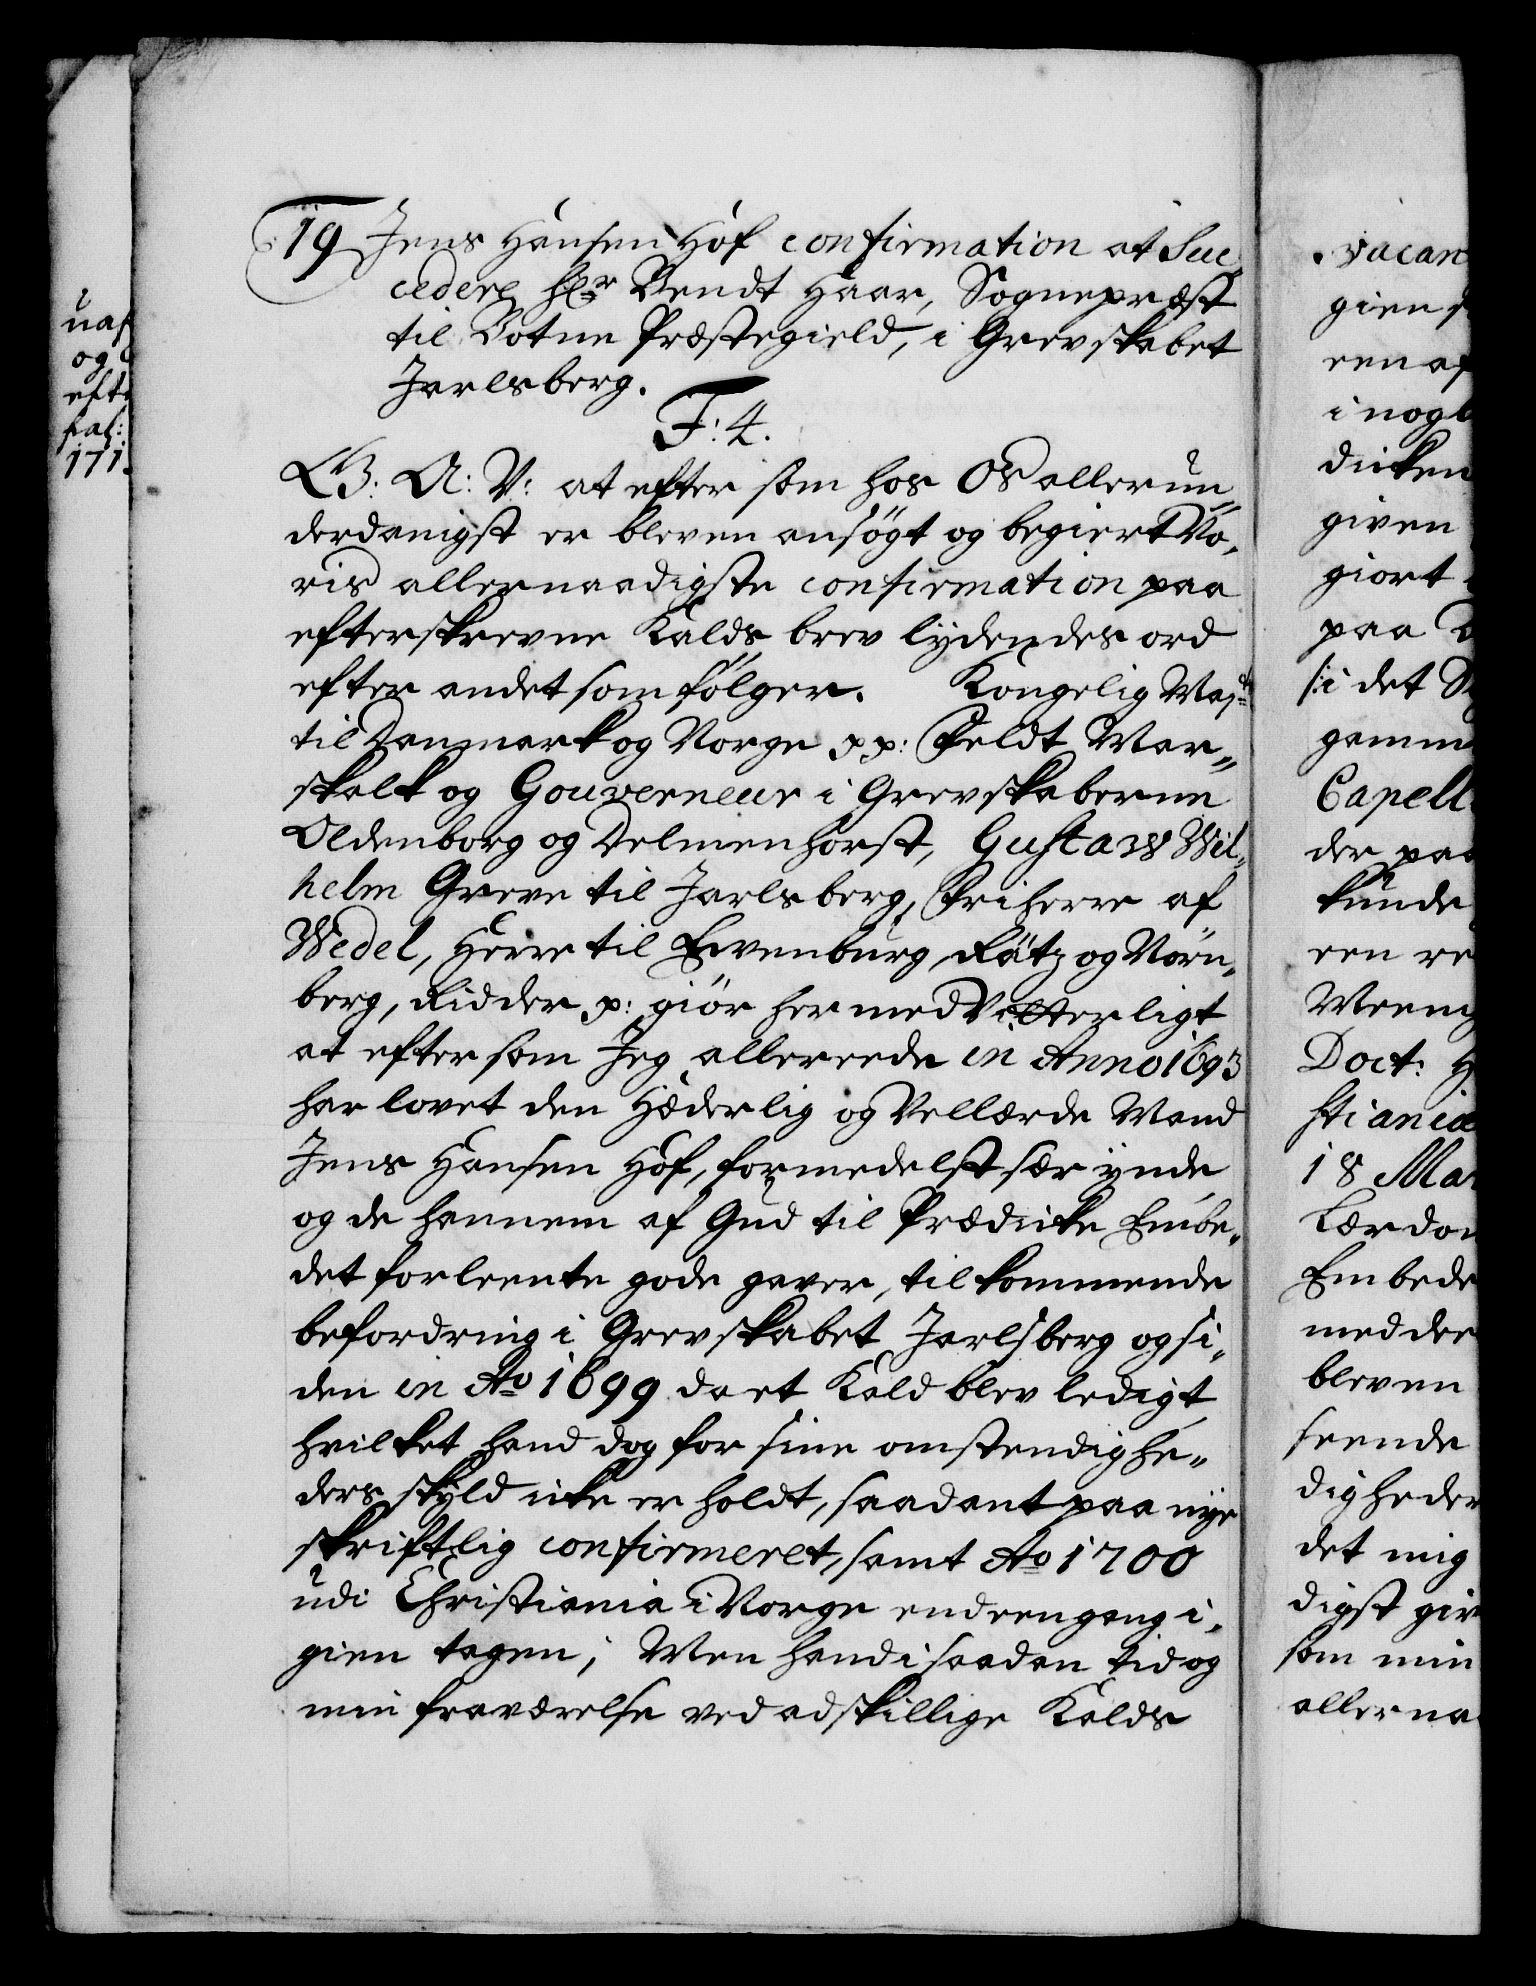 19 Jens Hansen Hof confirmation at Suc„
cedere Hr Bendt Haar, Sognepræst
til Botne Præstegield, i Grevskabet
Jarlsberg.
F: 4.
G: A: V: at eftersom hos Os allerun„
derdanigst er bleven ansøgt og begiert Vo„
ris allernaadigste confirmation paa
efterskrevne Kalds brev lydendes ord
efter andet som følger. Kongelig Majts
til Danmark og Norge pp: Feldt Mar„
skalk og Gouverneur i Grevskaberne
Oldenborg og Delmenhorst, Gustaw Wil„
helm Greve til Jarlsberg, Friherre af
Wedel, Herre til Evenburg, Rätz og Nörn„
berg, Ridder p: giör hermed Vitterligt
at eftersom Jeg allereede in Anno 1693
har lovet den Hæderlig og Vellærde Mand
Jens Hansen Hof, formedelst sær ynde
og de hannem af Gud til Prædicke Embe„
det forleente gode gaver, tilkommende
befordring i Grevskabet Jarlsberg og si„
den in Ao 1699 da et Kald blev ledigt
hvilket hand dog for sine omstendighe„
ders skyld icke erholdt, saadant paa nye
skriftlig confirmeret, samt Ao 1700
udi Christiania i Norge end eengang i„
gien tagen; Men hand i saadan tid og
min fraværelse ved adskillige Kalds
uaf
og
efte
171
vacan
gien
een af
i nog
dicken
given
giort
paa
/:i det
gamm
Capell
der paa
kunde
een re
Meenig
Doct: H
stiania
18 Mar
Lærdom
Embede
med den
bleven
seende
digheder
det mig
digst giv
som min
allerna